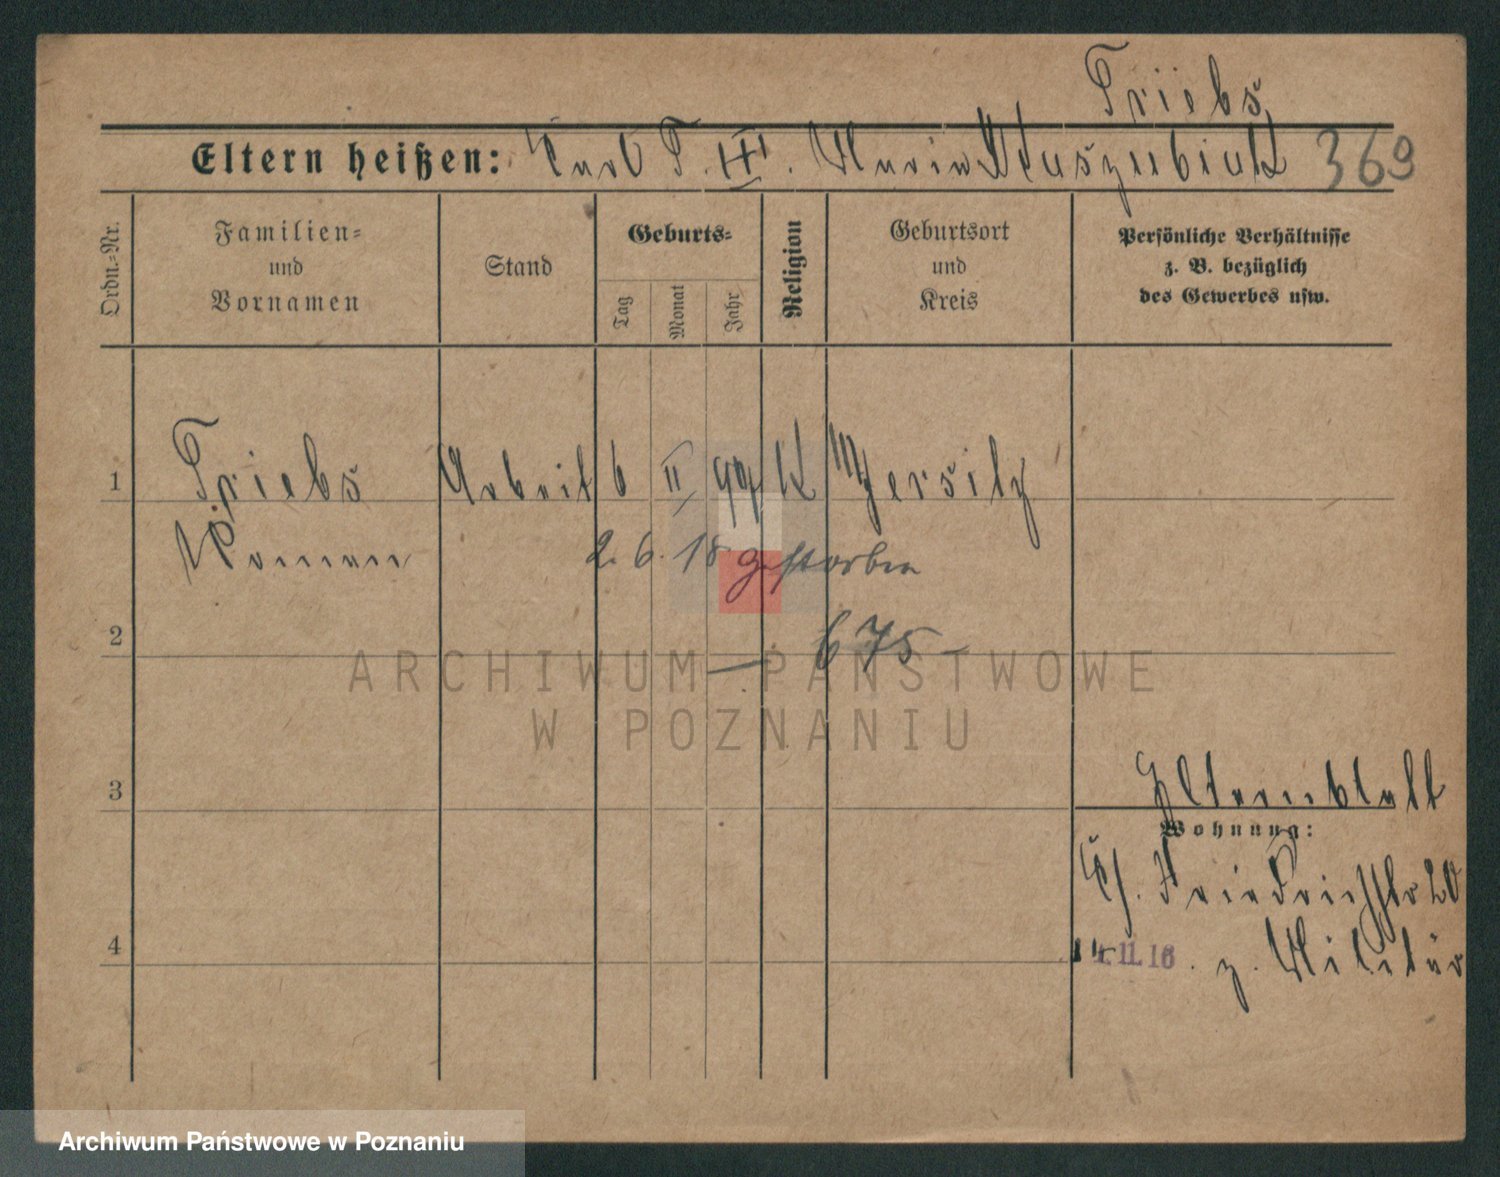 Triebs
Eltern heißen: Carl T. III. Maria Ktuszcubiak 369
Ordn.-Nr.
Familien-
und
Vornamen
Stand
Geburts-
Tag
Monat
Jahr
Religion
Geburtsort
und
Kreis
Persönliche Verhältnisse
z. B. bezüglich
des Gewerbes usw.
1 Triebs Arbeit 6 II 99 K Jersitz
Roman 2. 6. 18 gestorben
2 — 675 —
ARCHIWUM PAŃSTWOWE
W POZNANIU
3 Elternblatt
Wohnung:
Friedrichstr 20
4 14.11.16. z. Militär
Archiwum Państwowe w Poznaniu